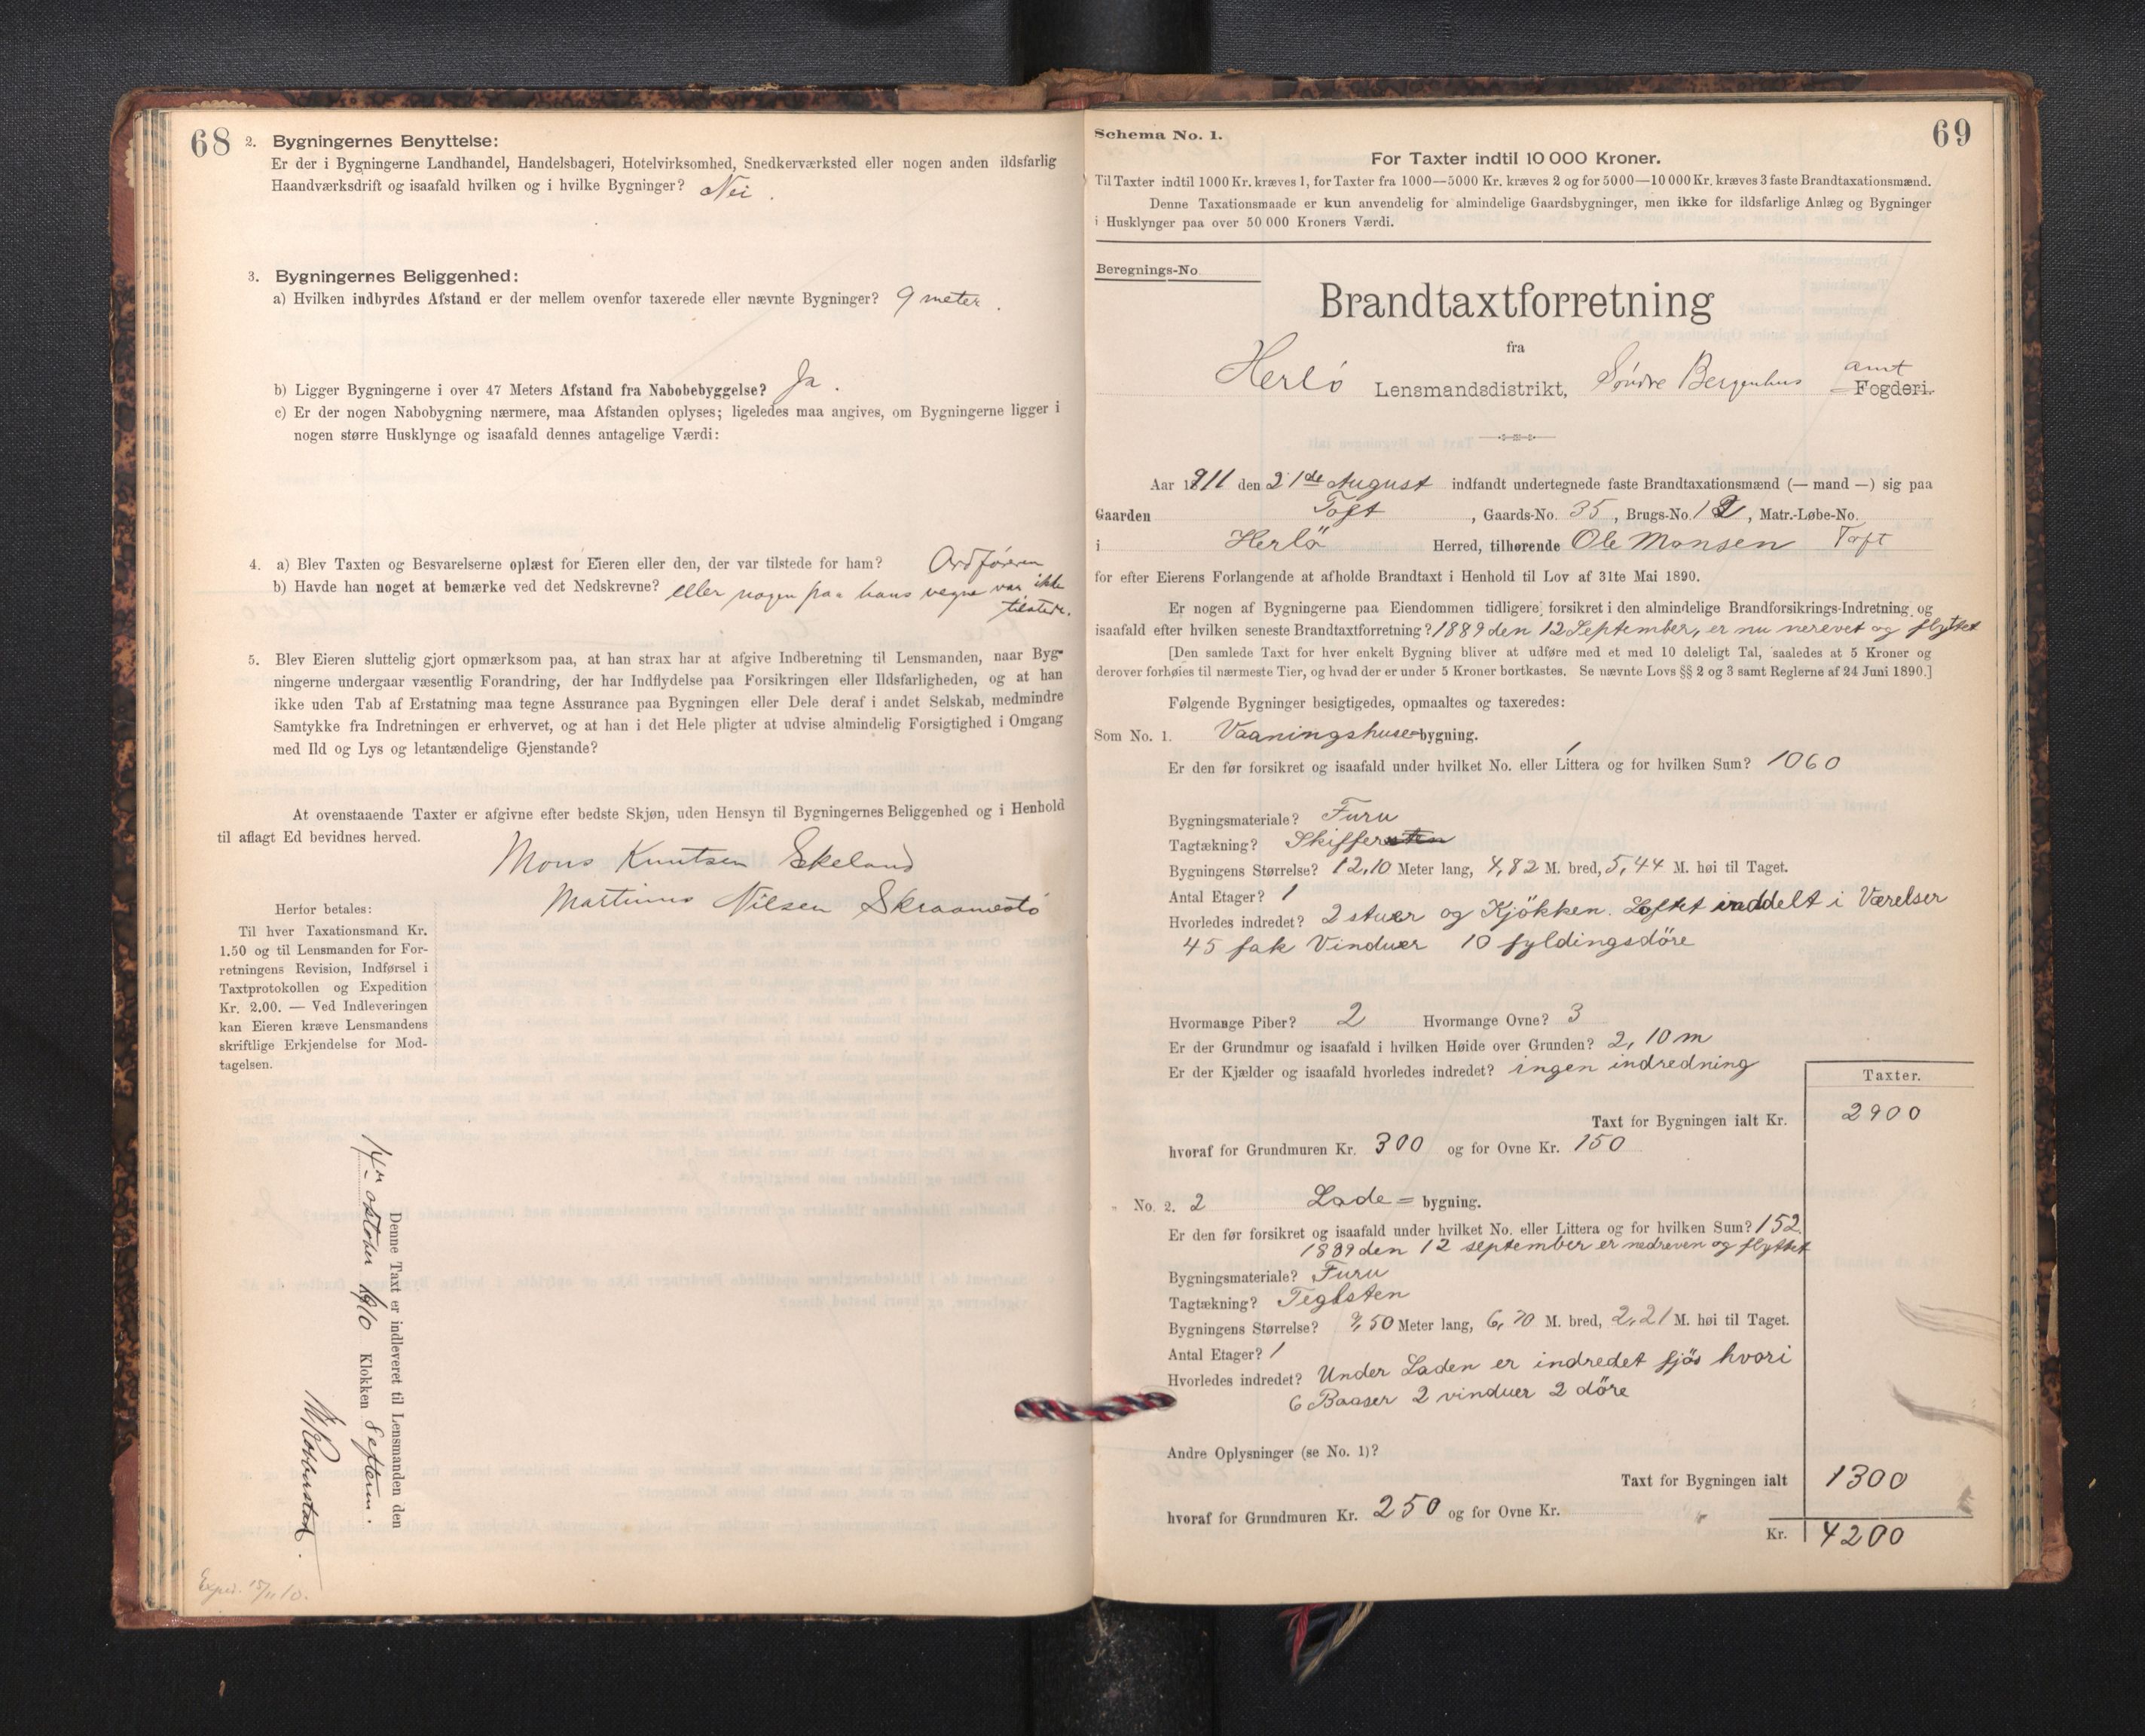 68
2. Bygningernes Benyttelse:
Er der i Bygningerne Landhandel, Handelsbageri, Hotelvirksomhed, Snedkerværksted eller nogen anden ildsfarlig
Haandværksdrift og isaafald hvilken og i hvilke Bygninger? Nei.
3. Bygningernes Beliggenhed:
a) Hvilken indbyrdes Afstand er der mellem ovenfor taxerede eller nævnte Bygninger? 9 meter.
b) Ligger Bygningerne i over 47 Meters Afstand fra Nabobebyggelse? Ja.
c) Er der nogen Nabobygning nærmere, maa Afstanden oplyses; ligeledes maa angives, om Bygningerne ligger i
nogen større Husklynge og isaafald dennes antagelige Værdi:
4. a) Blev Taxten og Besvarelserne oplæst for Eieren eller den, der var tilstede for ham? Ordføreren
b) Havde han noget at bemærke ved det Nedskrevne? eller nogen paa hans vegne var ikke
tilstede.
5. Blev Eieren sluttelig gjort opmærksom paa, at han strax har at afgive Indberetning til Lensmanden, naar Byg-
ningerne undergaar væsentlig Forandring, der har Indflydelse paa Forsikringen eller Ildsfarligheden, og at han
ikke uden Tab af Erstatning maa tegne Assurance paa Bygningen eller Dele deraf i andet Selskab, medmindre
Samtykke fra Indretningen er erhvervet, og at han i det Hele pligter at udvise almindelig Forsigtighed i Omgang
med Ild og Lys og letantændelige Gjenstande?
At ovenstaaende Taxter er afgivne efter bedste Skjøn, uden Hensyn til Bygningernes Beliggenhed og i Henhold
til aflagt Ed bevidnes herved.
Mons Knutsen Ekeland
Martinus Nilsen Skraamestö
Herfor betales:
Til hver Taxationsmand Kr.
1.50 og til Lensmanden for For-
retningens Revision, Indførsel i
Taxtprotokollen og Expedition
Kr. 2.00. — Ved Indleveringen
kan Eieren kræve Lensmandens
skriftlige Erkjendelse for Mod-
tagelsen.
Denne Taxt er indleveret til Lensmanden den
14de oktober 1910 Klokken 8 efterm.
Exped. 15/11 10.
69
Schema No. 1.
For Taxter indtil 10 000 Kroner.
Til Taxter indtil 1000 Kr. kræves 1, for Taxter fra 1000—5000 Kr. kræves 2 og for 5000—10 000 Kr. kræves 3 faste Brandtaxationsmænd.
Denne Taxationsmaade er kun anvendelig for almindelige Gaardsbygninger, men ikke for ildsfarlige Anlæg og Bygninger
i Husklynger paa over 50 000 Kroners Værdi.
Beregnings-No
Brandtaxtforretning
fra
Herlö Lensmandsdistrikt, Söndre Bergenhus amt Fogderi.
Aar 1911 den 21de August indfandt undertegnede faste Brandtaxationsmænd (— mand —) sig paa
Gaarden Toft, Gaards-No. 35, Brugs-No. 12, Matr.-Løbe-No.
i Herlö Herred, tilhørende Ole Monsen Toft
for efter Eierens Forlangende at afholde Brandtaxt i Henhold til Lov af 31te Mai 1890.
Er nogen af Bygningerne paa Eiendommen tidligere forsikret i den almindelige Brandforsikrings-Indretning og
isaafald efter hvilken seneste Brandtaxtforretning? 1889 den 12 September, er nu nerevet og flyttet
[Den samlede Taxt for hver enkelt Bygning bliver at udføre med et med 10 deleligt Tal, saaledes at 5 Kroner og
derover forhøies til nærmeste Tier, og hvad der er under 5 Kroner bortkastes. Se nævnte Lovs §§ 2 og 3 samt Reglerne af 24 Juni 1890.]
Følgende Bygninger besigtigedes, opmaaltes og taxeredes:
Som No. 1. Vaaningshuse-bygning.
Er den før forsikret og isaafald under hvilket No. eller Littera og for hvilken Sum? 1060
Bygningsmateriale? Furu
Tagtækning? Skiffer
Bygningens Størrelse? 12,10 Meter lang, 4,82 M. bred, 5,44 M. høi til Taget.
Antal Etager? 1
Hvorledes indredet? 2 stuer og Kjökken. Loftet inddelt i Værelser
45 fak Vinduer 10 fyldingsdöre
Hvormange Piber? 2 Hvormange Ovne? 3
Er der Grundmur og isaafald i hvilken Høide over Grunden? 2,10 m
Er der Kjælder og isaafald hvorledes indredet? ingen indredning
Taxter.
Taxt for Bygningen ialt Kr. 2900
hvoraf for Grundmuren Kr. 300 og for Ovne Kr. 150
" No. 2. 2 Lade = bygning.
Er den før forsikret og isaafald under hvilket No. eller Littera og for hvilken Sum? 152
1889 den 12 september er nedreven og flyttet
Bygningsmateriale? Furu
Tagtækning? Teglsten
Bygningens Størrelse? 9,50 Meter lang, 6,70 M. bred, 2,21 M. høi til Taget.
Antal Etager? 1
Hvorledes indredet? Under Laden er indredet fjös hvori
6 Baaser 2 vinduer 2 döre
Andre Oplysninger (se No. 1)?
Taxt for Bygningen ialt 1300
hvoraf for Grundmuren Kr. 250 og for Ovne Kr.
Kr. 4200